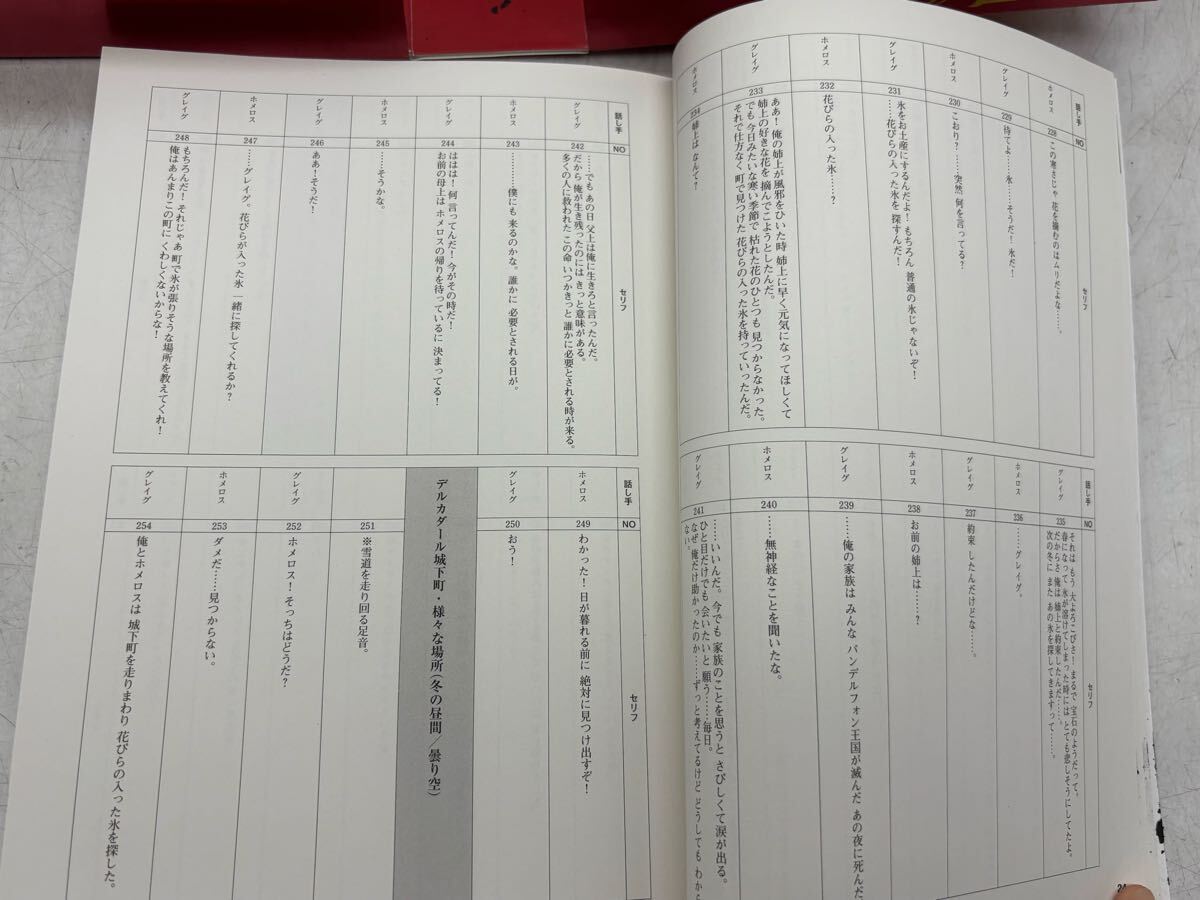 話し手
NO
セリフ
ホメロス
228
この寒さじゃ 花を摘むのはムリだよな……。
グレイグ
229
待てよ……氷……そうだ！ 氷だ！
ホメロス
230
こおり？ ……突然 何を言ってる？
グレイグ
231
氷をお土産にするんだよ！ もちろん 普通の氷じゃないぞ！
……花びらの入った氷を 探すんだ！
ホメロス
232
花びらの入った氷……？
グレイグ
233
ああ！ 俺の姉上が風邪をひいた時 姉上に早く元気になってほしくて
姉上の好きな花を 摘んでこようとしたんだ。
でも 今日みたいな寒い季節で 枯れた花のひとつも 見つからなかった。
それで仕方なく 町で見つけた 花びらの入った氷を持っていったんだ。
ホメロス
234
姉上は なんて？
話し手
NO
セリフ
グレイグ
235
それは もう 大よろこびさ！ まるで 宝石のようだって。
春になって 氷が溶けてしまった時には とても悲しそうにしてたよ。
だからさ 俺は 姉上と約束したんだ……。
次の冬に また あの氷を探してきますって……。
ホメロス
236
……グレイグ。
グレイグ
237
約束 したんだけどな……。
ホメロス
238
お前の姉上は……？
グレイグ
239
……俺の家族は みんな バンデルフォン王国が滅んだ あの夜に死んだ
ホメロス
240
……無神経なことを聞いたな。
グレイグ
241
……いいんだ。今でも 家族のことを思うと さびしくて涙が出る。
ひと目だけでも 会いたいと 願う……毎日。
なぜ 俺だけ助かったのか……ずっと考えてるけど どうしても わから
ない。
24
話し手
NO
セリフ
グレイグ
242
……でも あの日 父上は俺に生きろと言ったんだ。
だから 俺が生き残ったのには きっと意味がある。
多くの人に救われた この命 いつかきっと 誰かに必要とされる時が来る。
ホメロス
243
……僕にも 来るのかな。誰かに 必要とされる日が。
グレイグ
244
ははは！ 何 言ってんだ！ 今がその時だ！
お前の母上は ホメロスの帰りを待っているに 決まってる！
ホメロス
245
……そうかな。
グレイグ
246
ああ！そうだ！
ホメロス
247
……グレイグ。花びらが入った氷 一緒に探してくれるか？
グレイグ
248
もちろんだ！ それじゃあ 町で氷が張りそうな場所を教えてくれ！
俺はあんまりこの町に くわしくないからな！
話し手
NO
セリフ
ホメロス
249
わかった！ 日が暮れる前に 絶対に見つけ出すぞ！
グレイグ
250
おう！
デルカダール城下町・様々な場所（冬の昼間／曇り空）
251
※雪道を走り回る足音。
グレイグ
252
ホメロス！ そっちはどうだ？
ホメロス
253
ダメだ……見つからない。
グレイグ
254
俺とホメロスは 城下町を走りまわり 花びらの入った氷を探した。